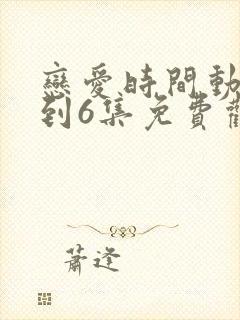 戀愛時間動
到6集免費觀
蕭逢